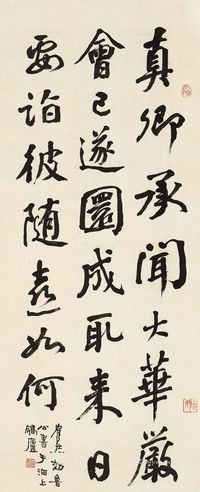 真卿承聞大華嚴
會已遂圓成取來日
要詣彼隨喜如何
公書于海上